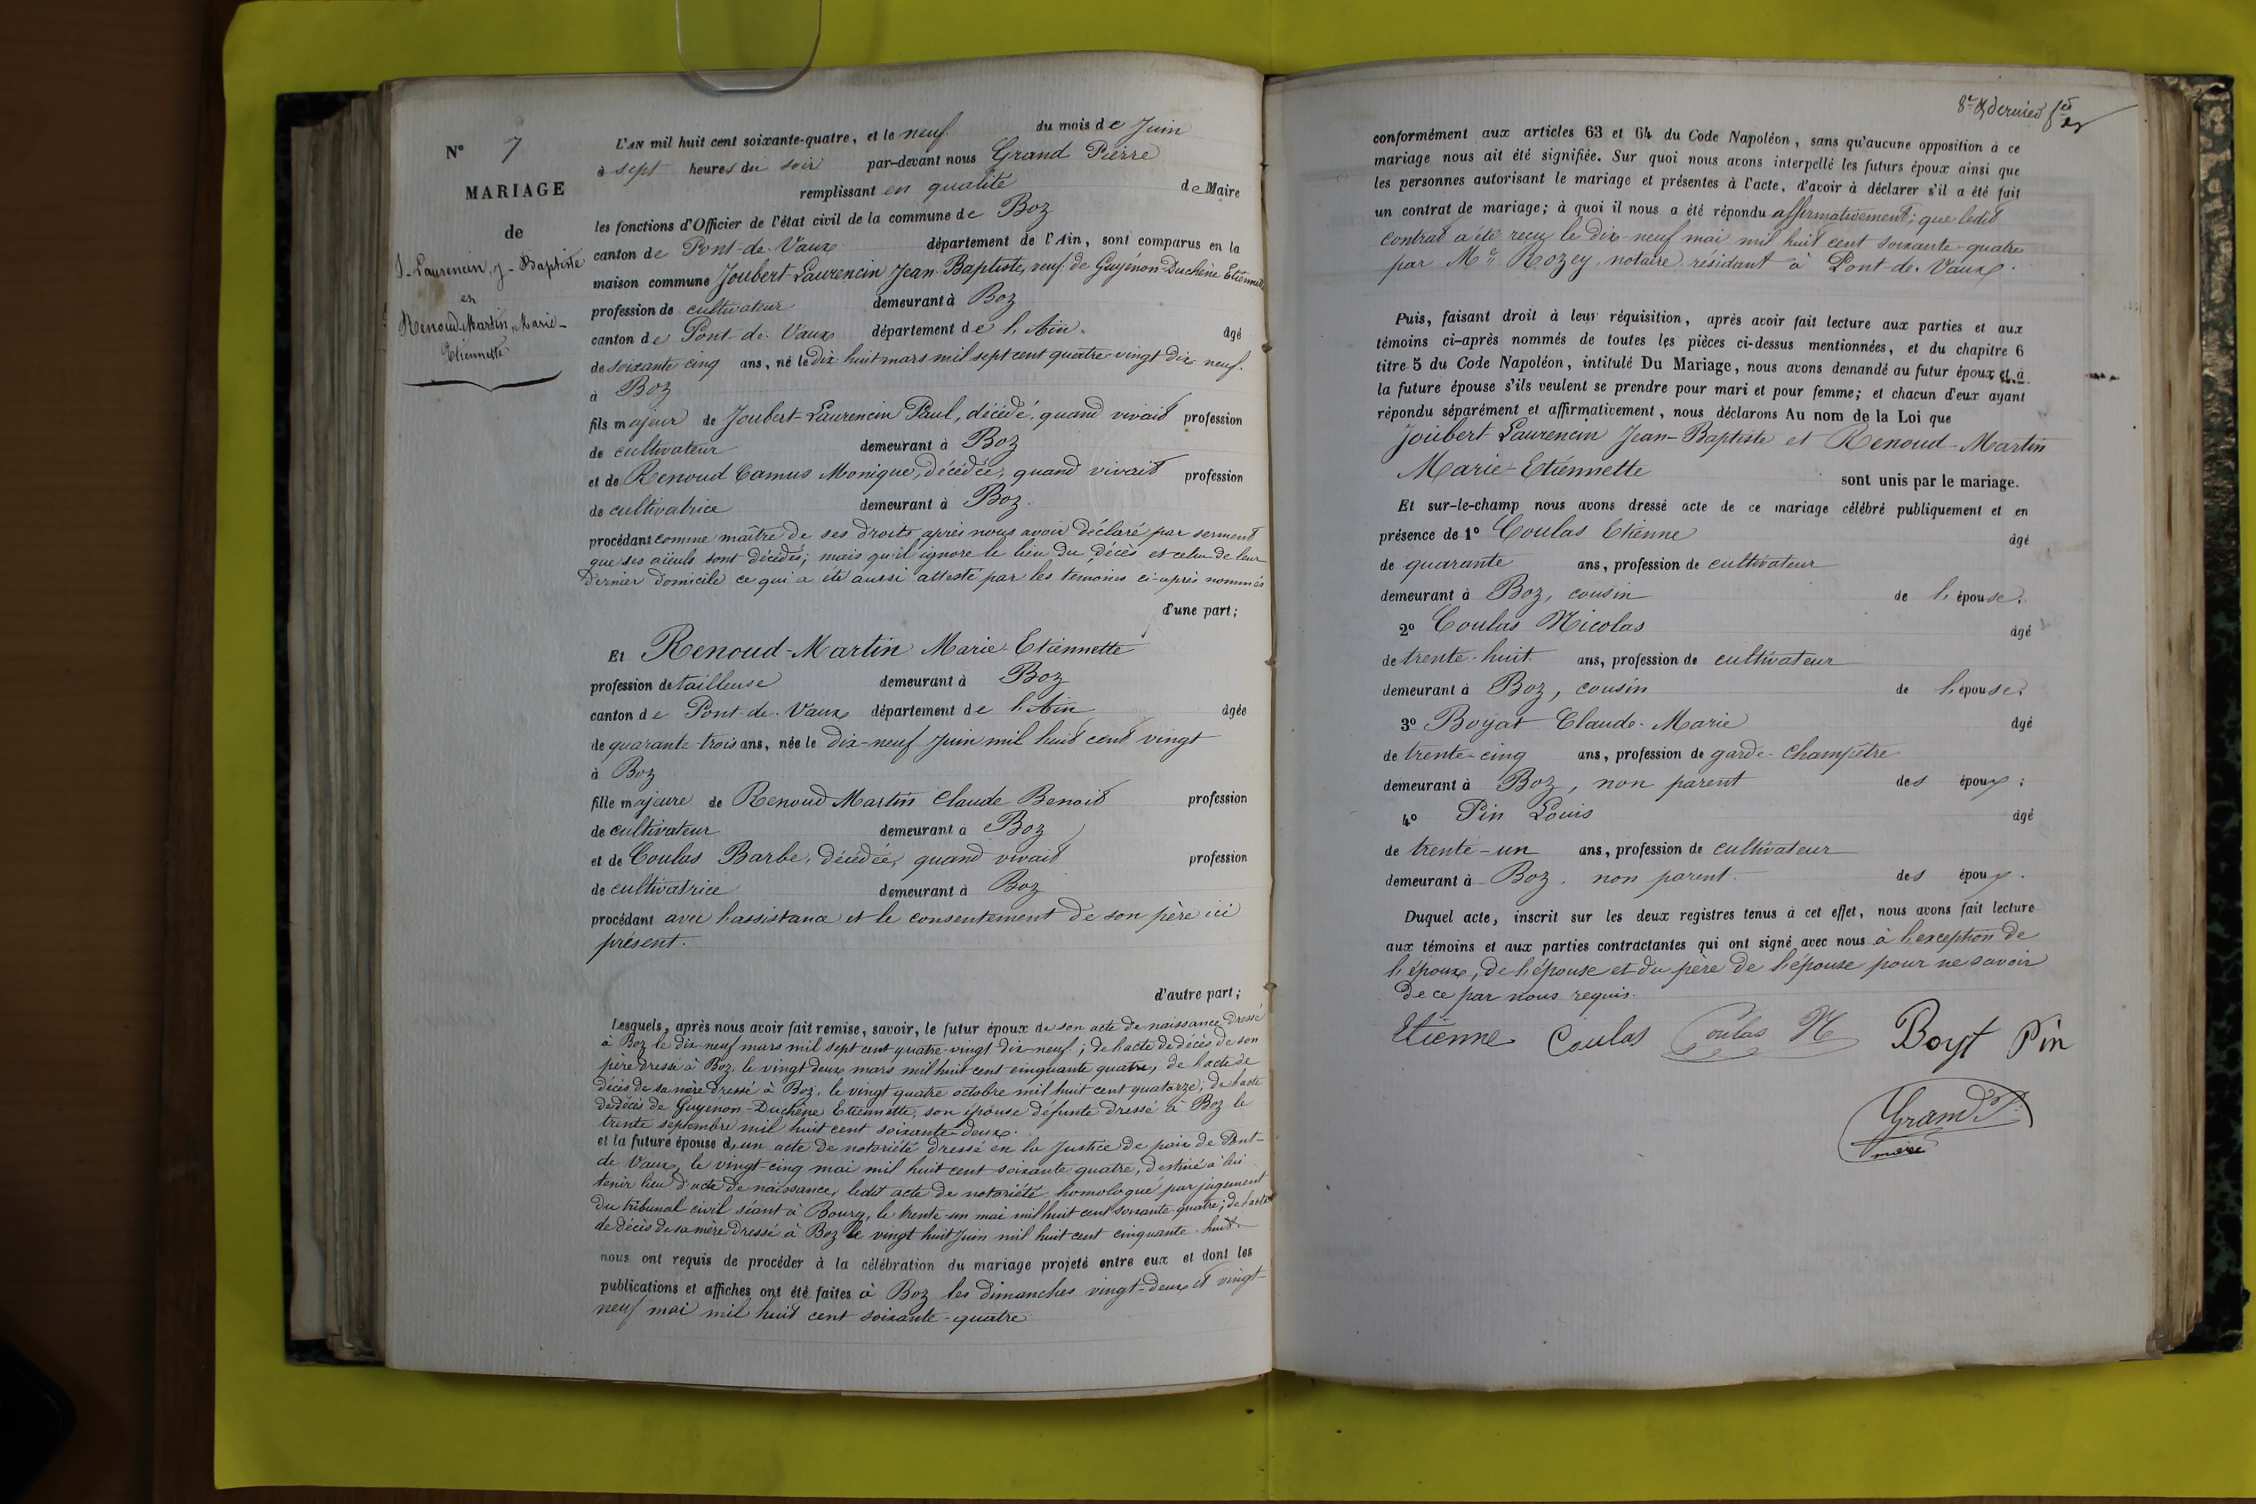 N° 7
MARIAGE
de
J-Laurencin, J-Baptiste
en
Renoud-Martin, Marie-
Etiennette
L'AN mil huit cent soixante-quatre, et le neuf du mois de Juin
à sept heures du soir par-devant nous Grand Pierre
remplissant en qualité de Maire
les fonctions d'Officier de l'état civil de la commune de Boz
canton de Pont-de-Vaux département de l'Ain, sont comparus en la
maison commune Joubert-Laurencin Jean-Baptiste, veuf de Guyénon-Duchêne Etiennette
profession de cultivateur demeurant à Boz
canton de Pont-de-Vaux département de l'Ain. âgé
de soixante cinq ans, né le dix-huit mars mil sept cent quatre vingt dix neuf.
à Boz
fils majeur de Joubert-Laurencin Paul, décédé, quand vivait profession
de cultivateur demeurant à Boz
et de Renoud Camus Monique, décédée, quand vivait profession
de cultivatrice demeurant à Boz.
procédant comme maître de ses droits après nous avoir déclaré par serment
que ses aïeuls sont décédés; mais qu'il ignore le lieu du décès et celui de leur
dernier domicile ce qui a été aussi attesté par les temoins ci-après nommés
d'une part;
Et Renoud-Martin Marie-Etiennette
profession de tailleuse demeurant à Boz
canton de Pont-de-Vaux département de l'Ain âgée
de quarante trois ans, née le dix-neuf Juin mil huit cent vingt
à Boz
fille majeure de Renoud Martin Claude Benoit profession
de cultivateur demeurant à Boz
et de Coulas Barbe, décédée, quand vivait profession
de cultivatrice demeurant à Boz
procédant avec l'assistance et le consentement de son père ici
présent.
d'autre part;
Lesquels, après nous avoir fait remise, savoir, le futur époux de son acte de naissance dressé
à Boz le dix-neuf mars mil sept cent quatre-vingt-dix-neuf; de l'acte de décès de son
père dressé à Boz, le vingt deux mars mil huit cent cinquante quatre, de l'acte de
décès de sa mère dressé à Boz, le vingt quatre octobre mil huit cent quatorze; de l'acte
de décès de Guyenon-Duchêne Etiennette, son épouse défunte dressé à Boz le
trente septembre mil huit cent soixante-deux.
et la future épouse d'un acte de notoriété dressé en la Justice de paix de Pont-
de Vaux, le vingt-cinq mai mil huit cent soixante quatre, destiné à lui
tenir lieu d'acte de naissance, ledit acte de notoriété homologué par jugement
du tribunal civil séant à Bourg, le trente-un mai mil huit cent soixante-quatre; de l'acte
de décès de sa mère dressé à Boz le vingt huit Juin mil huit cent cinquante-huit.
nous ont requis de procéder à la célébration du mariage projeté entre eux et dont les
publications et affiches ont été faites à Boz les dimanches vingt-deux et vingt-
neuf mai mil huit cent soixante-quatre
8e & dernier
conformément aux articles 63 et 64 du Code Napoléon, sans qu'aucune opposition à ce
mariage nous ait été signifiée. Sur quoi nous avons interpellé les futurs époux ainsi que
les personnes autorisant le mariage et présentes à l'acte, d'avoir à déclarer s'il a été fait
un contrat de mariage; à quoi il nous a été répondu affirmativement; que ledit
contrat a été reçu le dix-neuf mai mil huit cent soixante-quatre
par Me Rozey, notaire résidant à Pont-de-Vaux.
Puis, faisant droit à leur réquisition, après avoir fait lecture aux parties et aux
témoins ci-après nommés de toutes les pièces ci-dessus mentionnées, et du chapitre 6
titre 5 du Code Napoléon, intitulé Du Mariage, nous avons demandé au futur époux et à
la future épouse s'ils veulent se prendre pour mari et pour femme; et chacun d'eux ayant
répondu séparément et affirmativement, nous déclarons Au nom de la Loi que
Joubert-Laurencin Jean-Baptiste et Renoud-Martin
Marie-Etiennette
sont unis par le mariage.
Et sur-le-champ nous avons dressé acte de ce mariage célébré publiquement et en
présence de 1° Coulas Etienne âgé
de quarante ans, profession de cultivateur
demeurant à Boz, cousin de l'épouse;
2° Coulas Nicolas âgé
de trente-huit ans, profession de cultivateur
demeurant à Boz, cousin de l'épouse;
3° Boyat Claude-Marie âgé
de trente-cinq ans, profession de garde-champêtre
demeurant à Boz, non parent des époux;
4° Pin Louis âgé
de trente-un ans, profession de cultivateur
demeurant à Boz, non parent des époux.
Duquel acte, inscrit sur les deux registres tenus à cet effet, nous avons fait lecture
aux témoins et aux parties contractantes qui ont signé avec nous à l'exception de
l'époux, de l'épouse et du père de l'épouse pour ne savoir
de ce par nous requis.
Etienne Coulas Coulas N Boyt Pin
Grand P.
maire